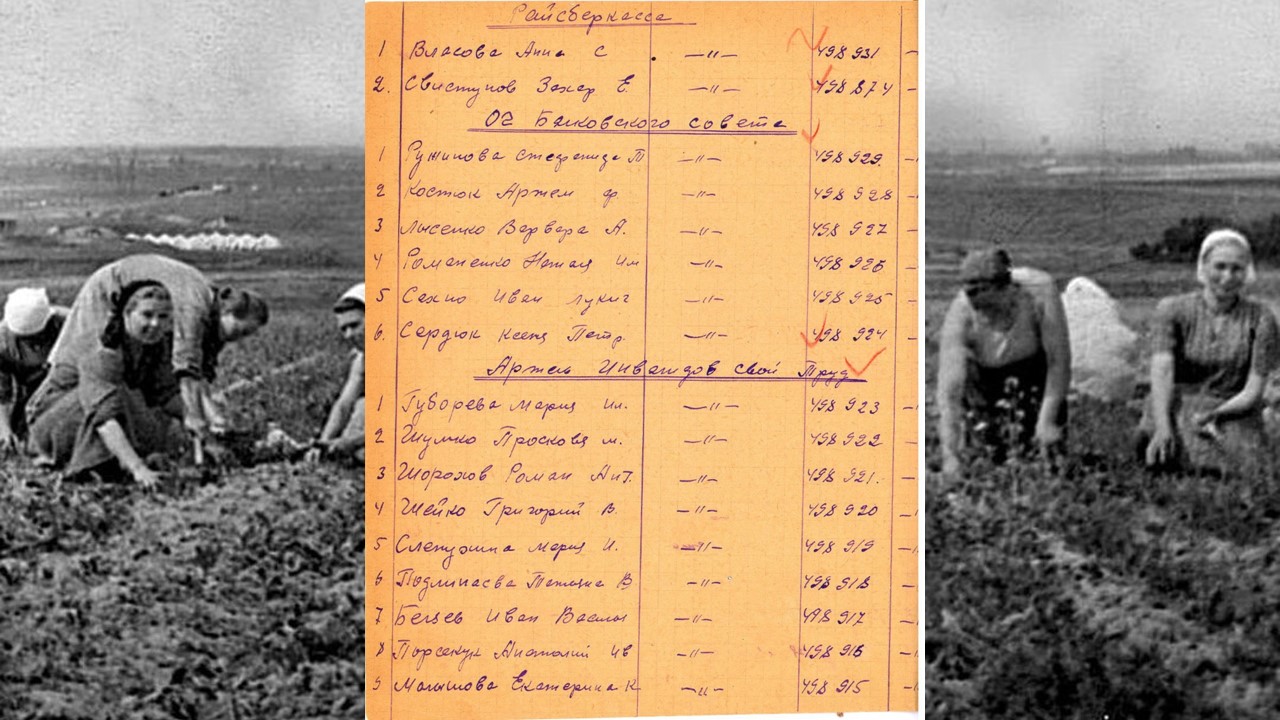 Райсберкасса
1 Власова Анна С —"— 498 931 —
2. Свистунов Захар Е. —"— 498 874 —
Банковского совета
1 Ружинова Степанида П —"— 498 929. —
2 Костюк Артем ф. —"— 498 928 —
3 Лысенко Варвара А. —"— 498 927 —
4 Романенко Наталя Ив —"— 498 926 —
5 Сахно Иван Лукич —"— 498 925 —
6. Сердюк Ксеня Петр. —"— 498 924 —
Артель Инвалидов свой Труд
1 Гуворева Мария Ил. —"— 498 923
2 Шулико Просковя М. —"— 498 922 —
3 Шорохов Роман Ант. —"— 498 921. —
4 Шейко Григорий В. —"— 498 920 —
5 Мария И. —"— 498 919 —
6 Татяна В —"— 498 918 —
7 Иван Васил —"— 498 917 —
8 Анатолий Ив —"— 498 916 —
9 Малышова Екатерина К —"— 498 915 —